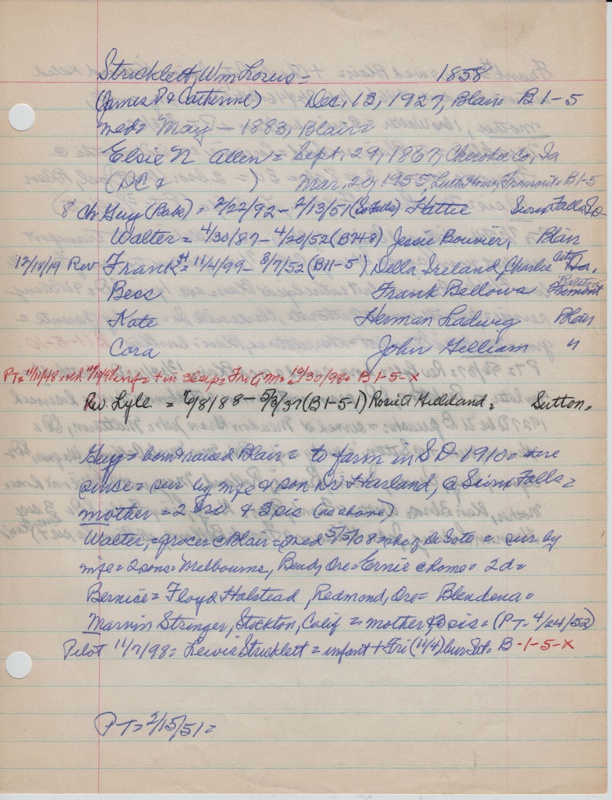 Stricklett, Wm Lorus - 1858
(James P & Catherine) Dec, 13, 1927, Blair B1-5
med= May - 1883, Blair
Elsie N Allen = Sept. 29, 1867, Cherokee Co, Ia
(DC & ) Mar. 20, 1955, Luth Home, Fremont = B1-5
8 Ch: Guy (Babe) = 2/22/92 - 2/13/51 Hattie Sioux Falls SD
Walter = 4/30/87 - 4/20/52 (B7-4-8) Jessie Bouvier, Blair
12/18/19 Rev Frank = 11/4/99 - 8/7/52 (B11-5) Della Ireland, Charlie
Bess Frank Bellows Fremont
Kate Herman Ladwig Blair
Cora John Gilliam "
PT = 11/11/48 = B1-5-X
Rev. Lyle = 6/8/88 - 5/3/37 (B1-5-1) Rosie A Hilleland = Sutton.
Guy = born & raised Blair = to farm in SD 1910 = there
since = sur by wife & son Dr Harland, @ Sioux Falls =
mother = 2 bro & 3 sis (as above)
Walter, = grocer c Blair = med 5/5/08 = sur by
wife = 2 sons = Melbourne, Bend, Ore = Ernie c home = 2 d =
Bernice = Floyd Halstead, Redmond, Ore = Blendena =
Marvin Stringer, Stockton, Calif = mother & sis = (PT = 4/24/52)
Pilot 11/7/98 = Lewis Stricklett = infant + Fri (11/4) bur Sat = B-1-5-X
PT = 2/15/51 =